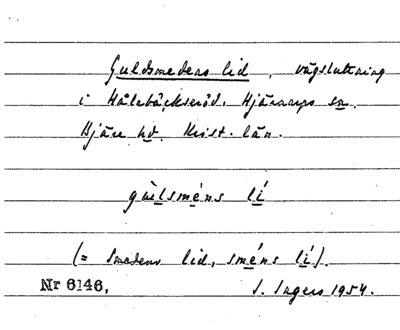 Guldsmedens lid, vägsluttning
i Hålebäckseröd, Hjärnarps sn.
Bjäre hd. Krist. län.
gùlsméns lí
(= Smedens lid, sméns lí).
Nr 6146, I. Ingers 1954.